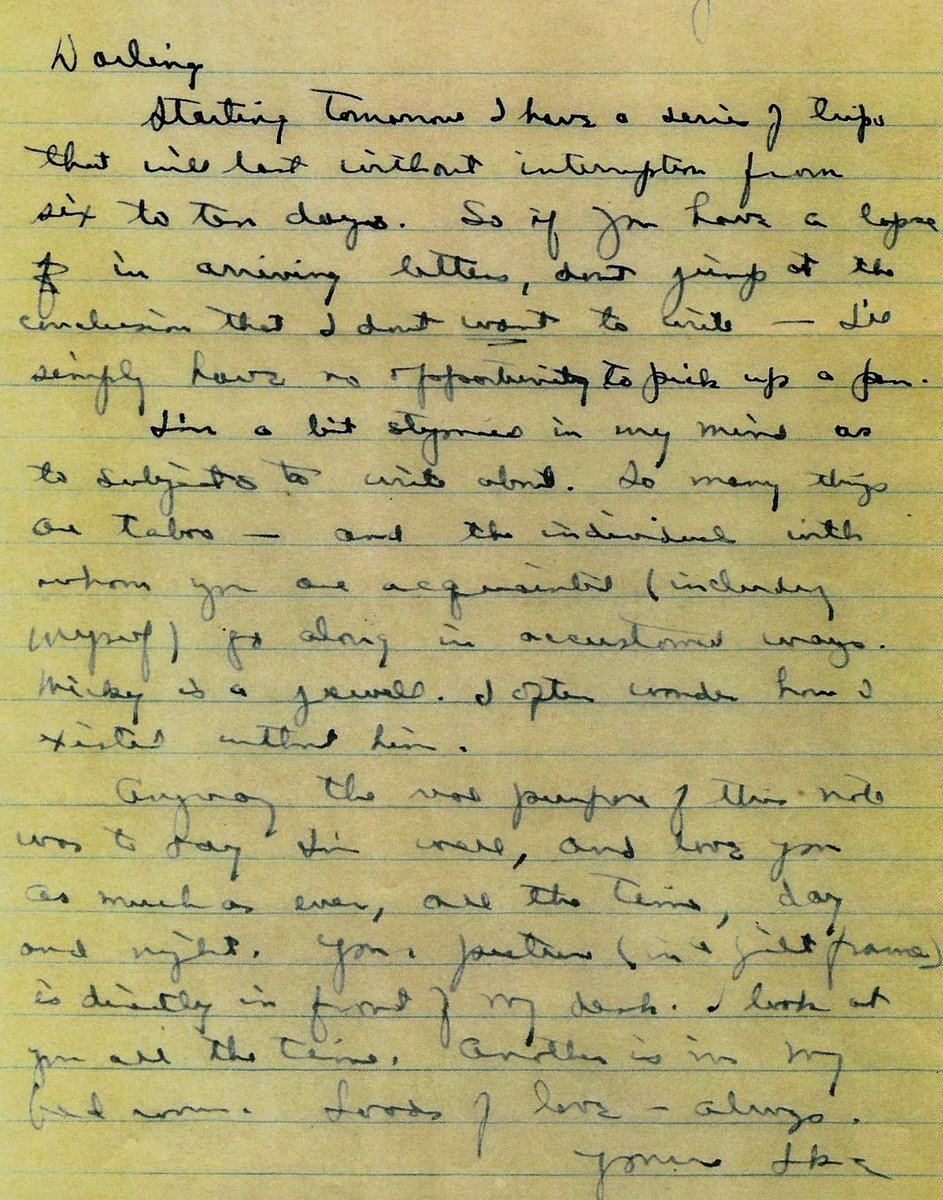 Darling
Starting tomorrow I have a series of trips
that will last without interruption from
six to ten days. So if you have a lapse
in arriving letters, dont jump at the
conclusion that I dont want to write — I'll
simply have no opportunity to pick up a pen.
I'm a bit stymied in my mind as
to subjects to write about. So many things
are taboo — and the individuals with
whom you are acquainted (including
myself) go along in accustomed ways.
Micky is a jewell. I often wonder how I
existed without him.
Anyway the real purpose of this note
was to say I'm well, and love you
as much as ever, all the time, day
and night. Your picture (in a gilt frame)
is directly in front of my desk. I look at
you all the time. Another is in my
bed room. Loads of love – always.
Your Ike